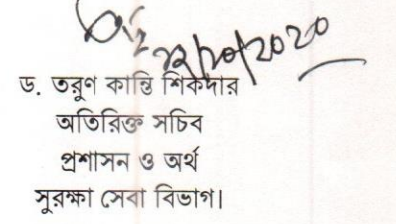 ২২/১০/২০২০
ড. তরুণ কান্তি শিকদার
অতিরিক্ত সচিব
প্রশাসন ও অর্থ
সুরক্ষা সেবা বিভাগ।